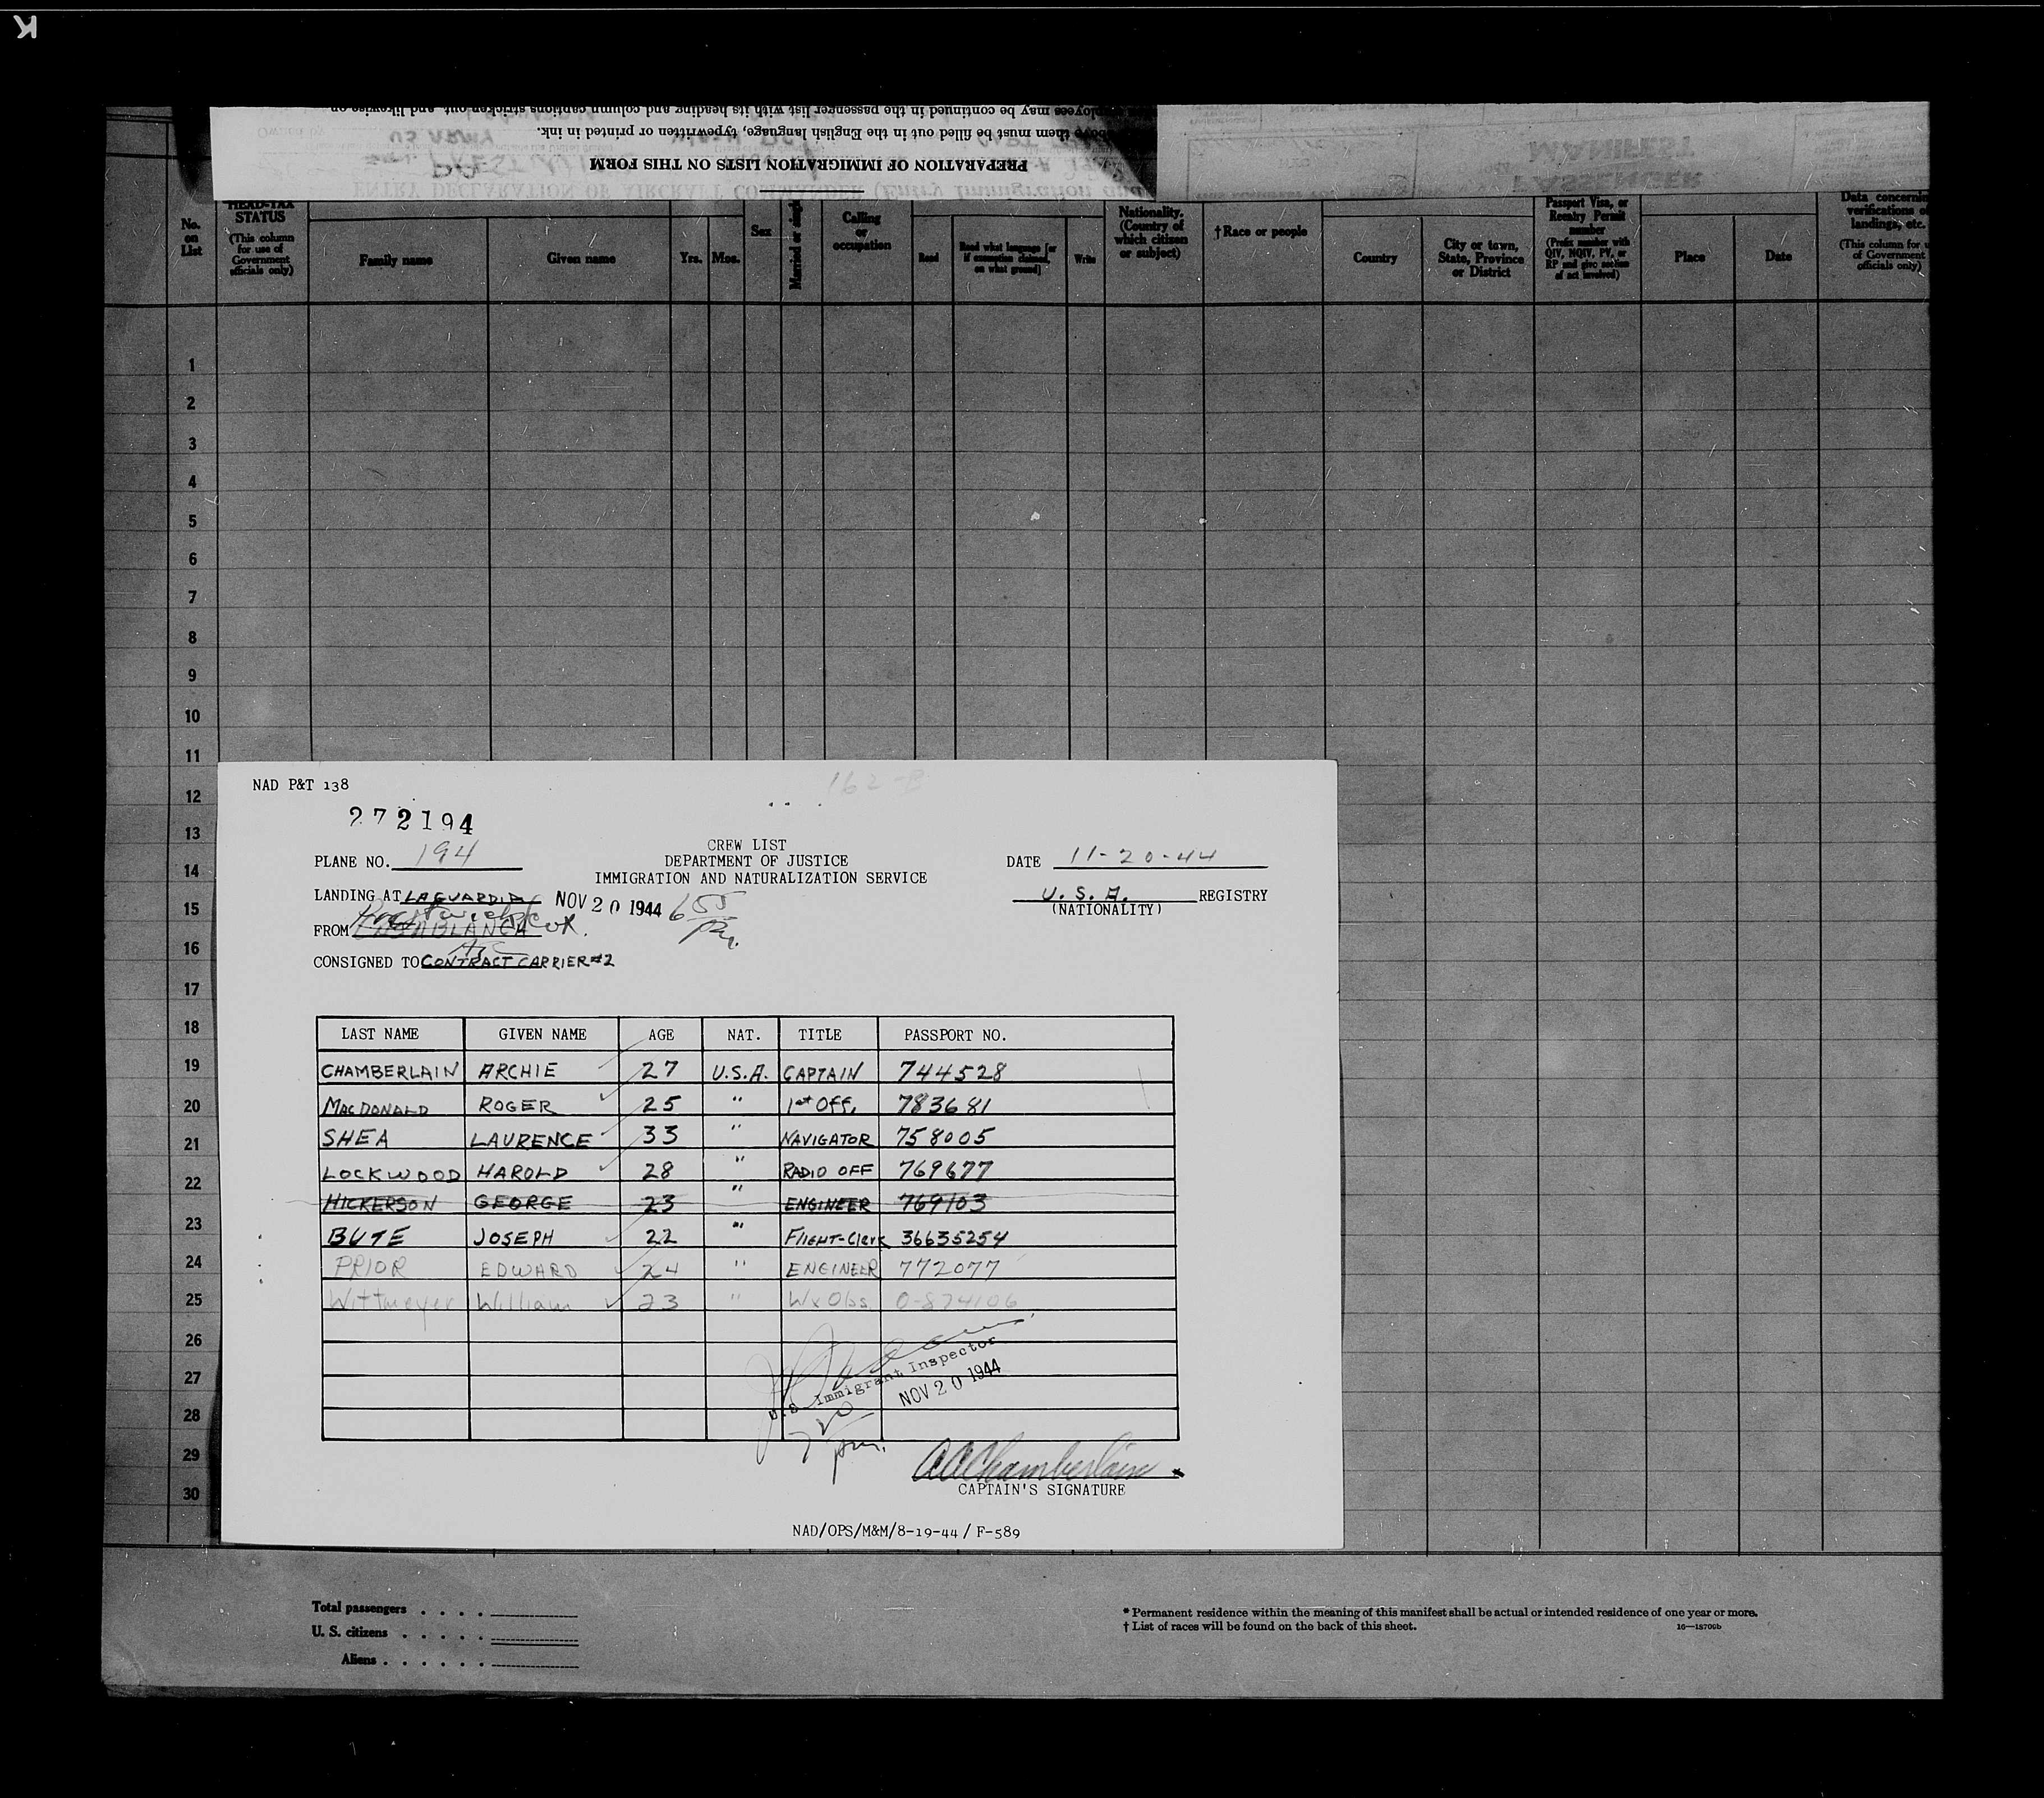 K
employees may be continued in the passenger list with its heading and column captions stricken out, and likewise on
above them must be filled out in the English language, typewritten or printed in ink.
PREPARATION OF IMMIGRATION LISTS ON THIS FORM
ENTRY DECLARATION OF AIRCRAFT COMMANDER (Entry Immigration and
US ARMY
PASSENGER
MANIFEST
No. on List
HEAD-TAX STATUS
(This column for use of Government officials only)
Family name
Given name
Yrs.
Mos.
Sex
Married or single
Calling or occupation
Read
Read what language [or if exemption claimed, on what ground]
Write
Nationality. (Country of which citizen or subject)
†Race or people
Country
City or town, State, Province or District
Passport Visa, or Reentry Permit number
(Prefix number with QIV, NQIV, PV, or RP and give section of act involved)
Place
Date
Data concerning verifications of landings, etc.
(This column for use of Government officials only)
1
2
3
4
5
6
7
8
9
10
11
12
13
14
15
16
17
18
19
20
21
22
23
24
25
26
27
28
29
30
NAD P&T 138
162-B
272194
CREW LIST
PLANE NO. 194
DEPARTMENT OF JUSTICE
DATE 11-20-44
IMMIGRATION AND NATURALIZATION SERVICE
LANDING AT LAGUARDIA NOV 20 1944 6 55 pm.
U.S.A. REGISTRY
(NATIONALITY)
Prestwick
FROM CASABLANCA UK.
ATC
CONSIGNED TO CONTRACT CARRIER #2
LAST NAME GIVEN NAME AGE NAT. TITLE PASSPORT NO.
CHAMBERLAIN ARCHIE 27 U.S.A. CAPTAIN 744528
MACDONALD ROGER 25 " 1st Off. 783681
SHEA LAURENCE 33 " NAVIGATOR 758005
LOCKWOOD HAROLD 28 " RADIO OFF 769677
HICKERSON GEORGE 23 " ENGINEER 769103
BUTE JOSEPH 22 " FLIGHT-Clerk 36635254
PRIOR EDWARD 24 " ENGINEER 772077
Wittmeyer William 23 " Wx Obs 0-874106
U.S. Immigrant Inspector
NOV 20 1944
7 20 pm.
AAChamberlain
CAPTAIN'S SIGNATURE
NAD/OPS/M&M/8-19-44/ F-589
Total passengers . . . .
U. S. citizens . . . . .
Aliens . . . . . .
* Permanent residence within the meaning of this manifest shall be actual or intended residence of one year or more.
† List of races will be found on the back of this sheet.
16—18700b